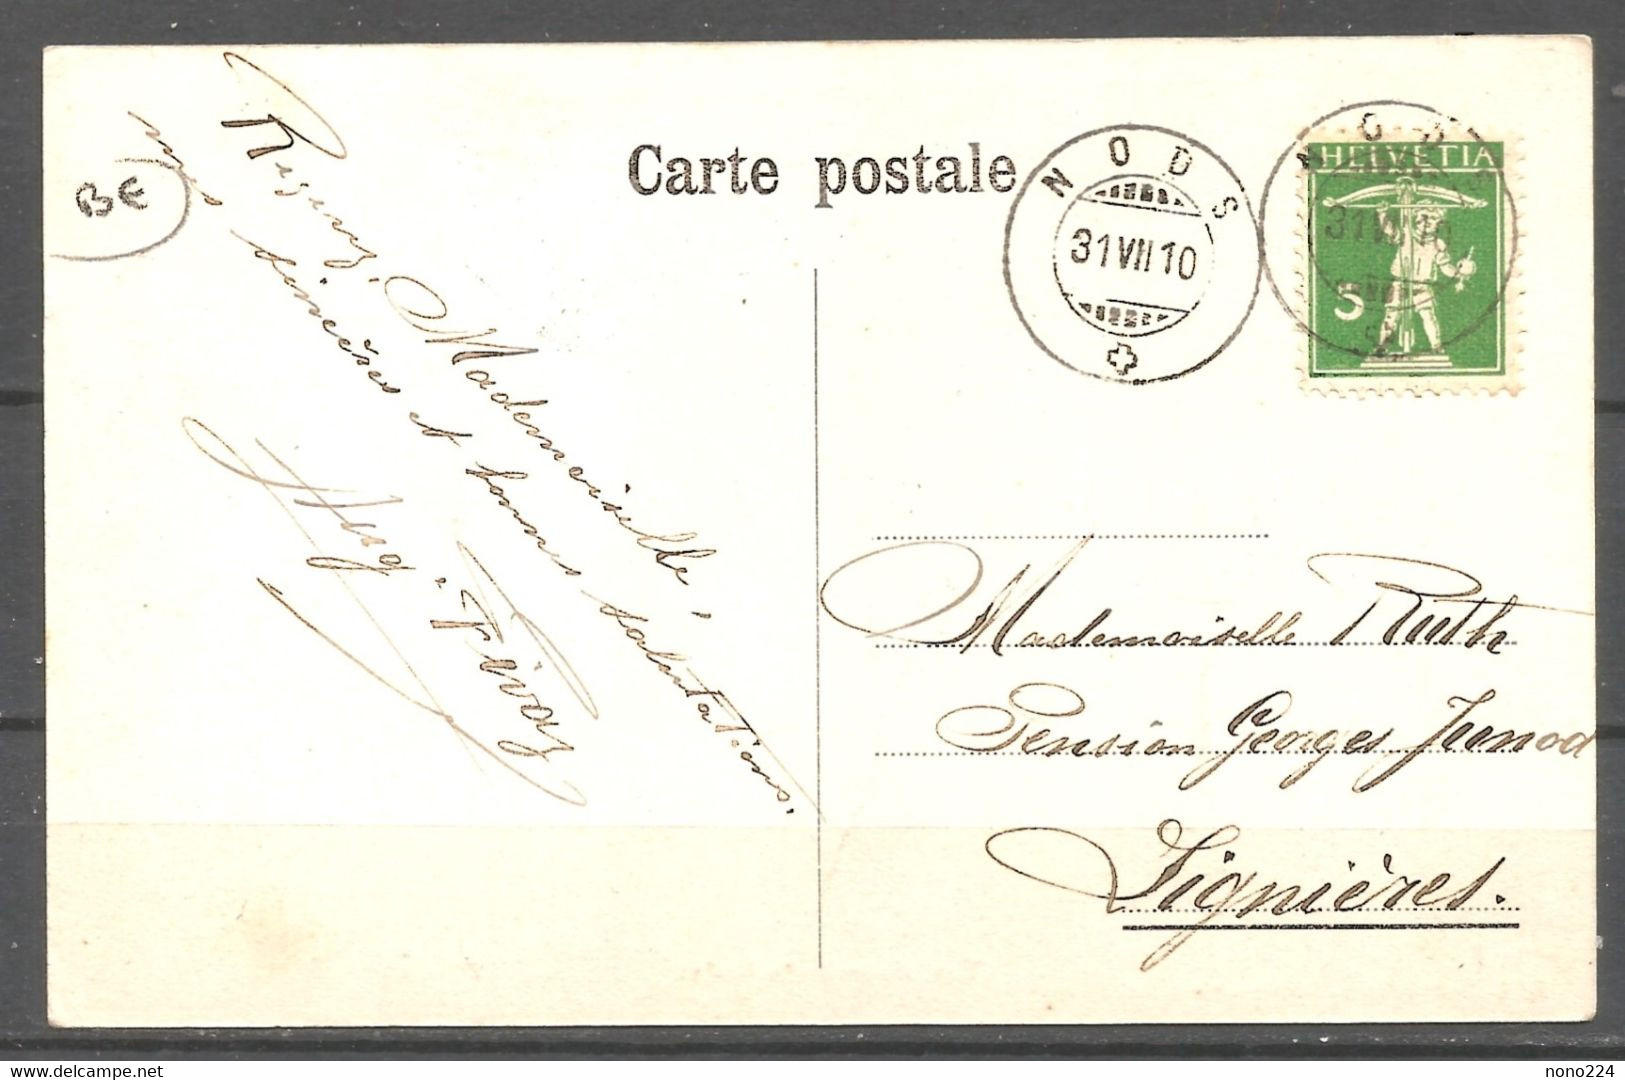 Carte postale
BE
NODS
31 VII 10
NODS
31 VII 10
HELVETIA
5
Recevez, Mademoiselle,
mes sincères et bonnes salutations.
Aug. Fivaz
Mademoiselle Ruth
Pension Georges Junod
Lignières.
www.delcampe.net
nono224